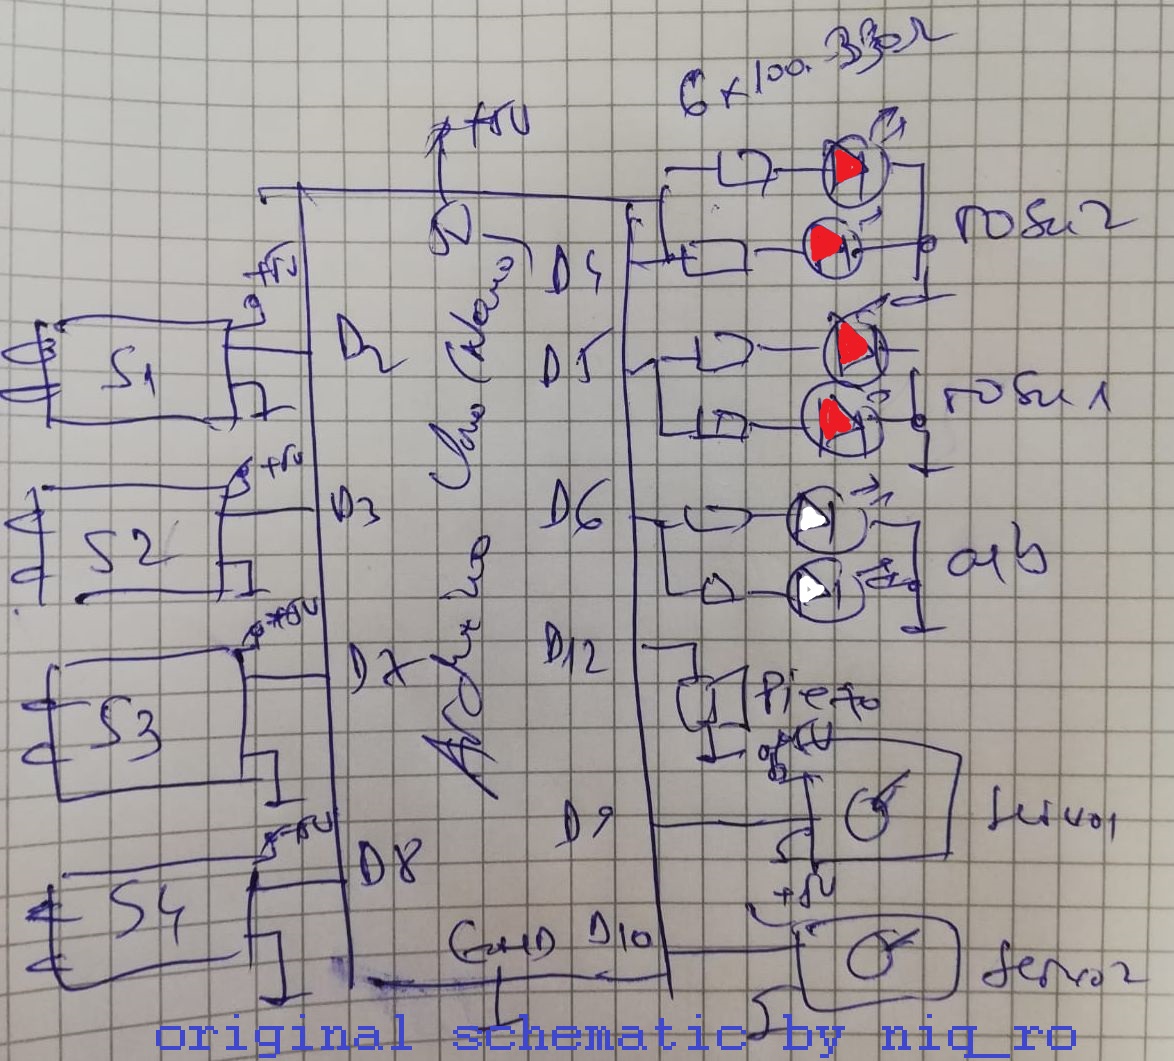 6 x 100..330Ω
+5V
+5V
S1
D2
D4
roșu 2
D5
roșu 1
+5V
S2
D3
D6
alb
+5V
S3
D7
D12
Piezo
Arduino Uno (Nano)
+5V
D9
Servo1
+5V
S4
D8
+5V
GND
D10
Servo2
original schematic by niq_ro